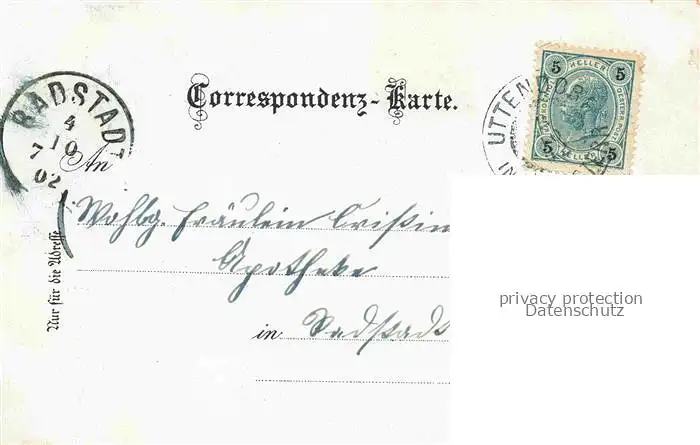 Correspondenz-Karte.
5 HELLER 5
5 HELLER 5
UTTENDORF
RADSTADT
4
10
7
02
An
Wohlg. Fräulein Cristin
Apotheke
in Radstadt
Nur für die Adresse
privacy protection
Datenschutz